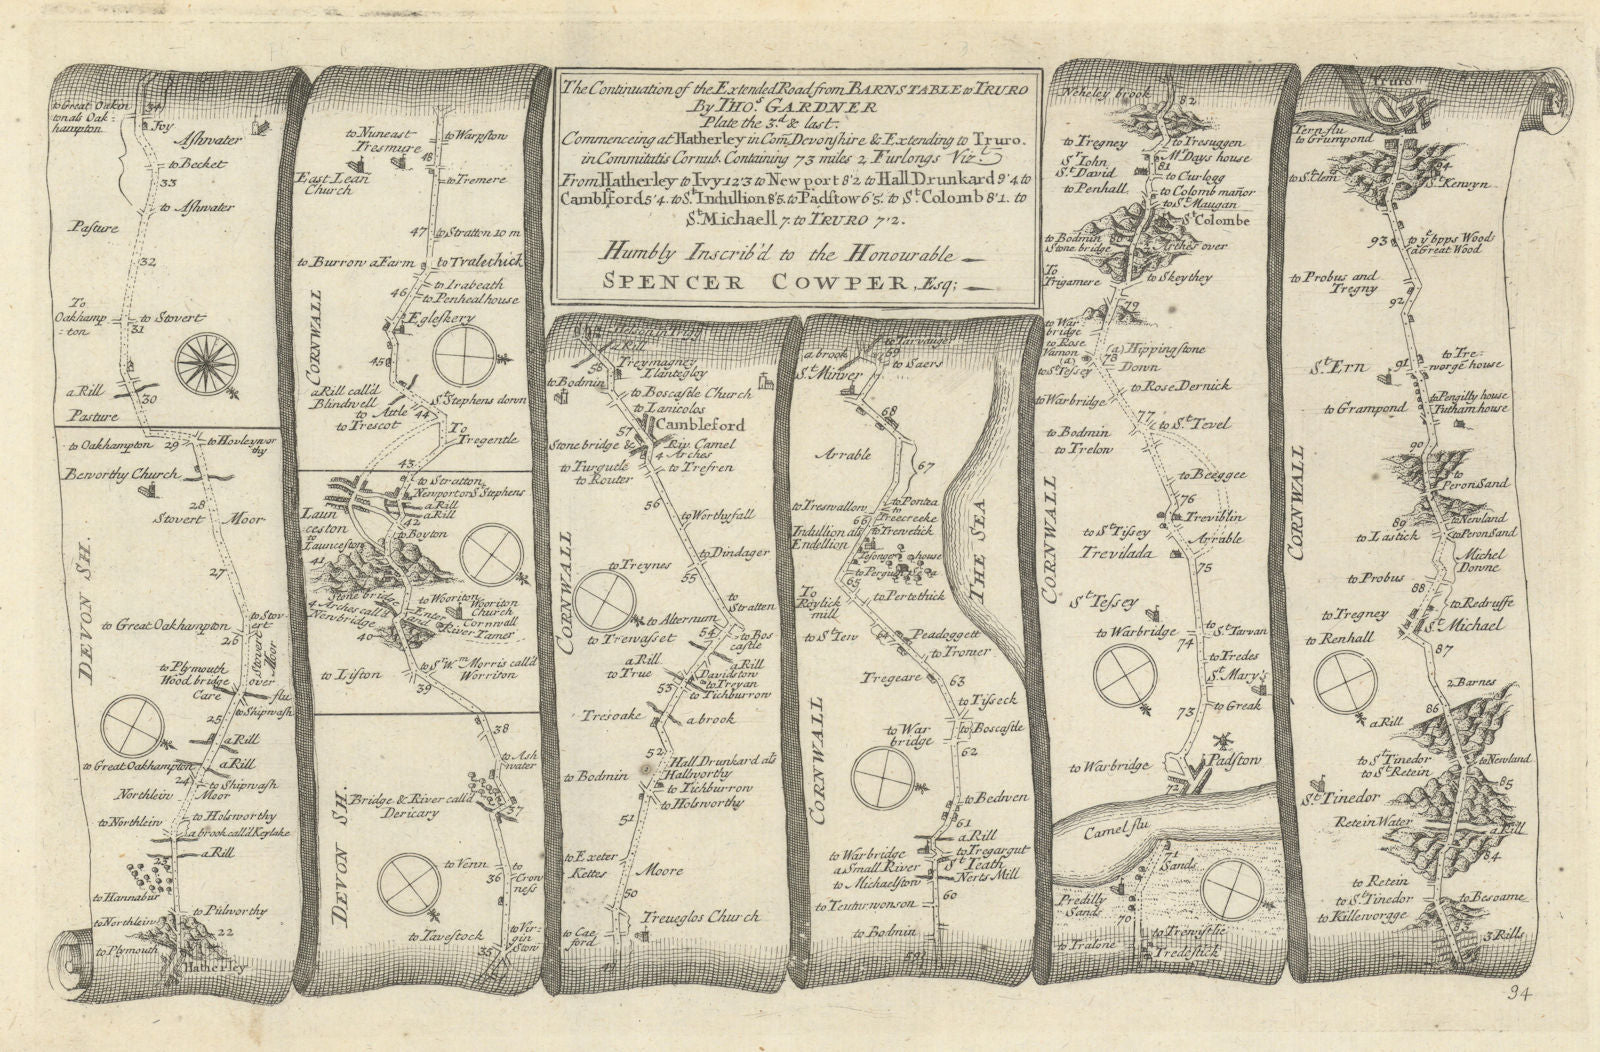 The Continuation of the Extended Road from BARNSTABLE to TRURO
By THO.s GARDNER
Plate the 3.d & last.
Commenceing at Hatherley in Com. Devonshire & Extending to Truro.
in Commitatis Cornub. Containing 73 miles 2 Furlongs Viz.t
From Hatherley to Ivy 12'3 to New port 8'2 to Hall Drunkard 9'4 to
Camblsford 5'4. to S.t Indullion 8'5. to Padstow 6'5. to S.t Colomb 8'1. to
S.t Michaell 7. to TRURO 7'2.
Humbly Inscrib'd to the Honourable
SPENCER COWPER, Esq;
to Great Oakin
tonals Oak:
hampton
34
Ivy
Ashwater
to Becket
33
to Ashwater
Pasture
32
To
Oakhamp
:ton
to Stovert
31
a Rill
30
Pasture
to Oakhampton
29
to Hovleywor
thy
Beworthy Church
28
Stovert
Moor
DEVON SH.
27
to Great Oakhampton
to Stov:
ert
26
Stovert
Moor
to Plymouth
Wood bridge
over
Care
flu
25
to Shipwash
a Rill
to Great Oakhampton
a Rill
24
to Shipwash
Moor
Northlein
to Northlein
to Holsworthy
a brook call'd Keplake
a Rill
23
to Hannabur
to Pulworthy
to Northlein
22
to Plymouth
Hatherley
to Nuneast
Tresmure
to Warpston
48
East Lean
Church
to Tremere
47
to Stratton 10 m
to Burrow a Farm
to Tralechick
to Trabeath
46
to Penheal house
CORNWALL
Egleskery
45
a Rill call'd
Blindwell
S.t Stephens down
to Attle
44
to Trescot
To
Tregentle
43
to Stratton
Newport on S Stephens
a Rill
a Rill
Laun
ceston
to
Launceston
42
to Boyton
41
Stone bridge
4 Arches call'd
Newbridge
to Wooriton
Wooriton
Church
Enter
Cornwall
and
River Tamer
40
to Lifton
to S.r W.m Morris call'd
Worriton
39
38
to Ash
water
Bridge & River call'd
Dericary
37
DEVON SH.
to Venn
36
to
Crow
ness
to Tavestock
to Vir=
gin
Stow
35
a Rill
58
Treymagney
Llantegloy
to Bodmin
to Boscastle Church
to Lanicolos
Cambleford
57
Stone bridge &
Riv. Camel
4 Arches
to Turgutle
to Trefren
to Router
56
to Worthyfall
CORNWALL
to Dindager
to Treynes
55
to
Stratten
to Alternum
54
to Bos
castle
to Trewasset
a Rill
a Rill
to True
Davidston
to Treyan
53
to Tichburrow
Tresoake
a brook
52
Hall Drunkard als
Hallworthy
to Bodmin
to Tichburrow
to Holsworthy
51
to Exeter
Kettes
Moore
50
Treueglos Church
to Cae=
ford
49
to Tarvauger
a brook
69
to Saers
S.t Minver
68
Arrable
67
to Treswallow
to Pontea
to
Treecreeke
66
Indullion als
Endellion
to Trevetick
Tesonger house
to Perguin Sea
65
To
Roytick
mill
to Pertethick
THE SEA
to S.t Tew
64
Peadoggett
to Tromer
Tregeare
63
to Tisseck
to War
bridge
to Boscastle
62
CORNWALL
to Bedwen
61
a Rill
to Warbridge
to Tregargut
a Small River
S.t Teath
to Michaelstow
Nerts Mill
60
to Teuturwonson
to Bodmin
59
Neheley brook
82
to Tregney
to Tresuggen
S.t Iohn
M.r Days house
S.t David
81
to Curlogg
to Penhall
to Colomb mañor
to S.t Maugan
S.t Colombe
to Bodmin
80
Stone bridge
Arches over
To
Trigamere
to Skeythey
79
to War
bridge
to Rose
Vamon
(a) Hippingstone
(a)
78
Down
to S.t Tessey
to Rose Dernick
to Warbridge
77
to S.t Tevel
to Bodmin
to Trelow
to Beeggee
CORNWALL
76
Treviblin
to S.t Tissey
Arrable
Trevilada
75
S.t Tessey
to Warbridge
to S.t Tarvan
74
to Tredes
S.t Mary's
73
to Greak
to Warbridge
Padstow
72
Camel flu
71
Sands
Predilly
Sands
70
to Tremistle
to Tralone
Tredestick
Truro
Tern flu
to Grumpond
94
to S.t Clem
S.t Kenwyn
93
to y.e bpps Wood
a Great Wood
to Probus and
Tregny
92
91
to Tre=
worge house
S.t Ern
to Pengilty house
to Grampond
Tutham house
90
CORNWALL
to
Peron Sand
89
to Newland
to Lastick
to Peron Sand
Michel
Downe
to Probus
88
to Redruffe
to Tregney
S.t Michael
to Renhall
87
2 Barnes
86
a Rill
to S.t Tinedor
to Newland
to S.t Retein
85
S.t Tinedor
Retein Water
a Rill
84
to Retein
to S.t Tinedor
to Besoame
to Killevorgge
83
3 Rills
94